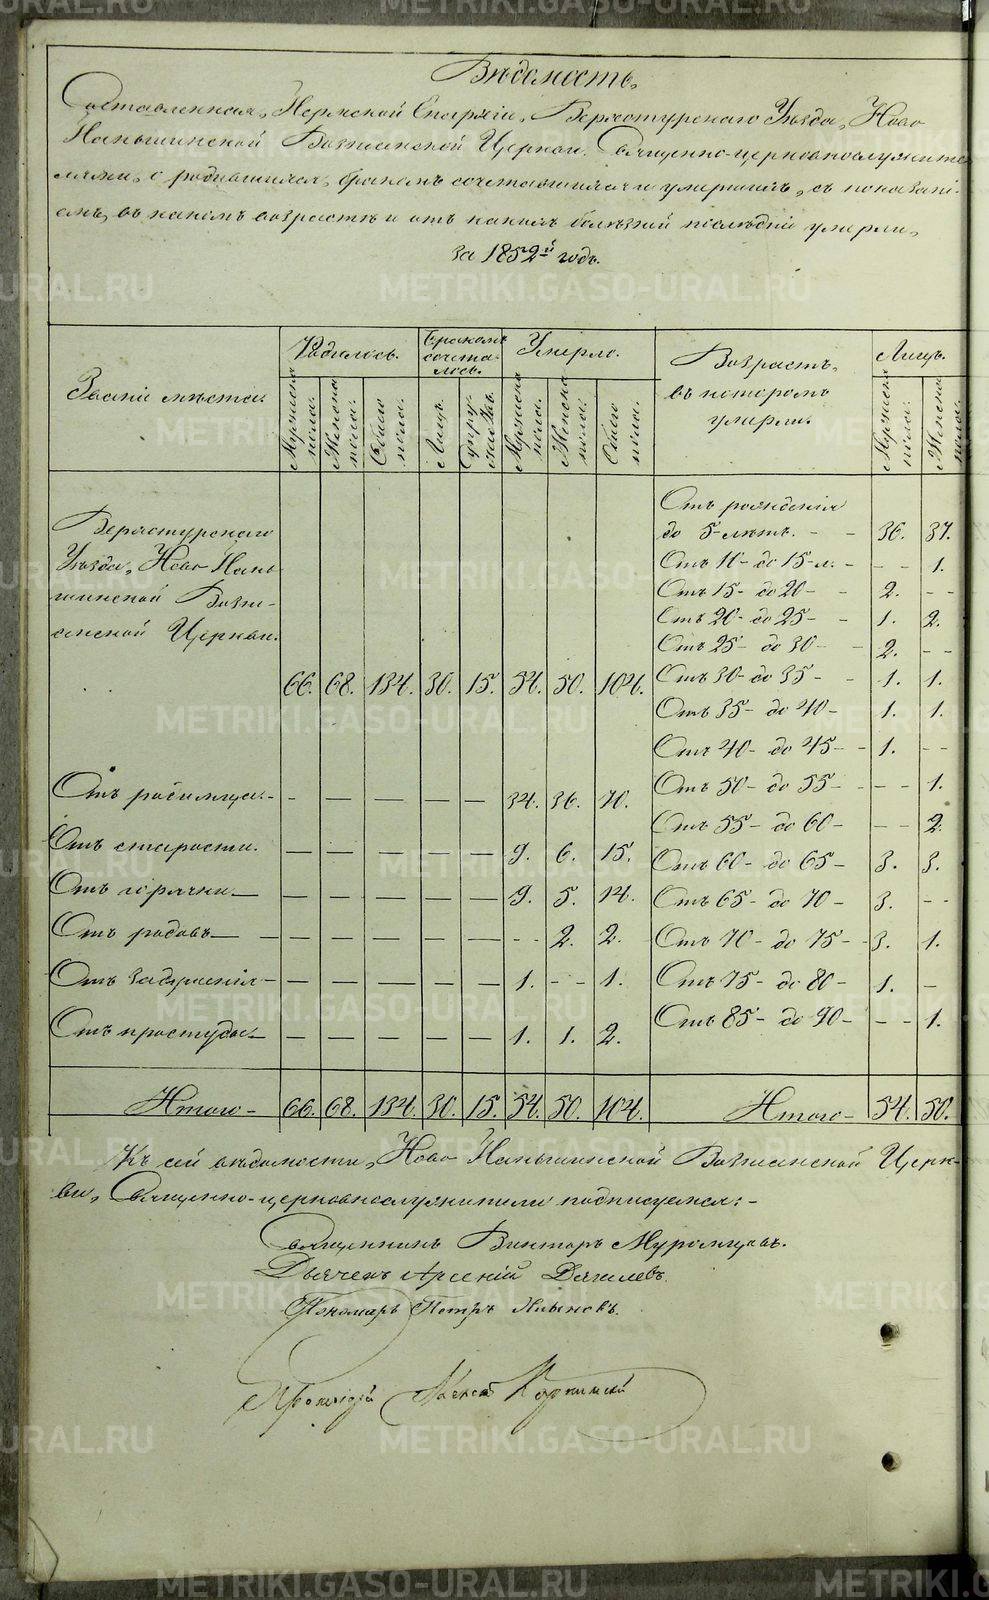 Вѣдомость,
Составленная, Пермской Епархіи, Верхотурскаго Уѣзда, Ново
Паньшинской Вознесенской Церкви Священно-церковнослужите
лями, о родившихся, бракомъ сочетавшихся и умершихъ, съ показані-
емъ, въ какомъ возрастѣ и отъ какихъ болѣзней послѣдніе умерли,
за 1852й годъ.
Званіе мѣста. Родилось. Бракомъ сочета-лось. Умерло. Возрастъ, въ которомъ умерли. Лицъ.
Мужеска пола. Женска пола. Обоего пола. Лицъ. Супружествъ. Мужеска пола. Женска пола. Обоего пола. Мужеска пола. Женска пола.
Верхотурскаго
Уѣзда, Ново Пань
шинской Возне-
сенской Церкви.
66. 68. 134. 30. 15. 54. 50. 104.
Отъ родимца. - — — — — — 34. 36. 70.
Отъ старости. — — — — — 9. 6. 15.
Отъ горячки — — — — — — 9. 5. 14.
Отъ родовъ — — — — — — - - 2. 2.
Отъ — — — — — 1. - - 1.
Отъ простуды. — — — — — — 1. 1. 2.
Итого - 66. 68. 134. 30. 15. 54. 50. 104.
Отъ рожденія
до 5-лѣтъ. - - 36. 37.
Отъ 10- до 15-л. - - - 1.
Отъ 15- до 20- - 2. - -
Отъ 20- до 25- - 1. 2.
Отъ 25- до 30- - 2. - -
Отъ 30- до 35- - 1. 1.
Отъ 35- до 40- 1. 1.
Отъ 40- до 45- - 1. - -
Отъ 50- до 55- - - - 1.
Отъ 55- до 60- - - 2.
Отъ 60- до 65- 3. 3.
Отъ 65- до 70- 3. - -
Отъ 70- до 75- - 3. 1.
Отъ 75- до 80- 1. -
Отъ 85- до 90- - - 1.
Итого - 54. 50.
Къ сей вѣдомости, Ново Паньшинской Вознесенской Церк-
ви, Священно-церковнослужители подписуемся: -
Священникъ Викторъ
Дьячекъ Арсеній Дягилевъ.
Пономарь Петръ
METRIKI.GASO-URAL.RU